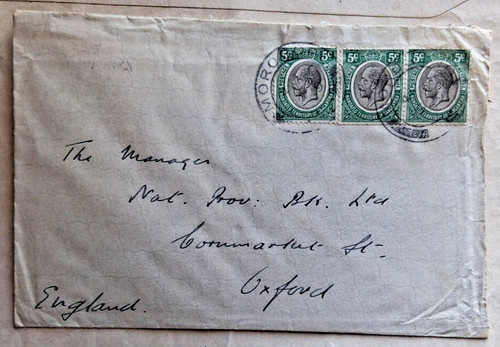 MOROGORO
5c 5c 5c 5c 5c 5c
The Manager
Nat. Prov: Bk. Ltd
Cornmarket St.
Oxford
England.